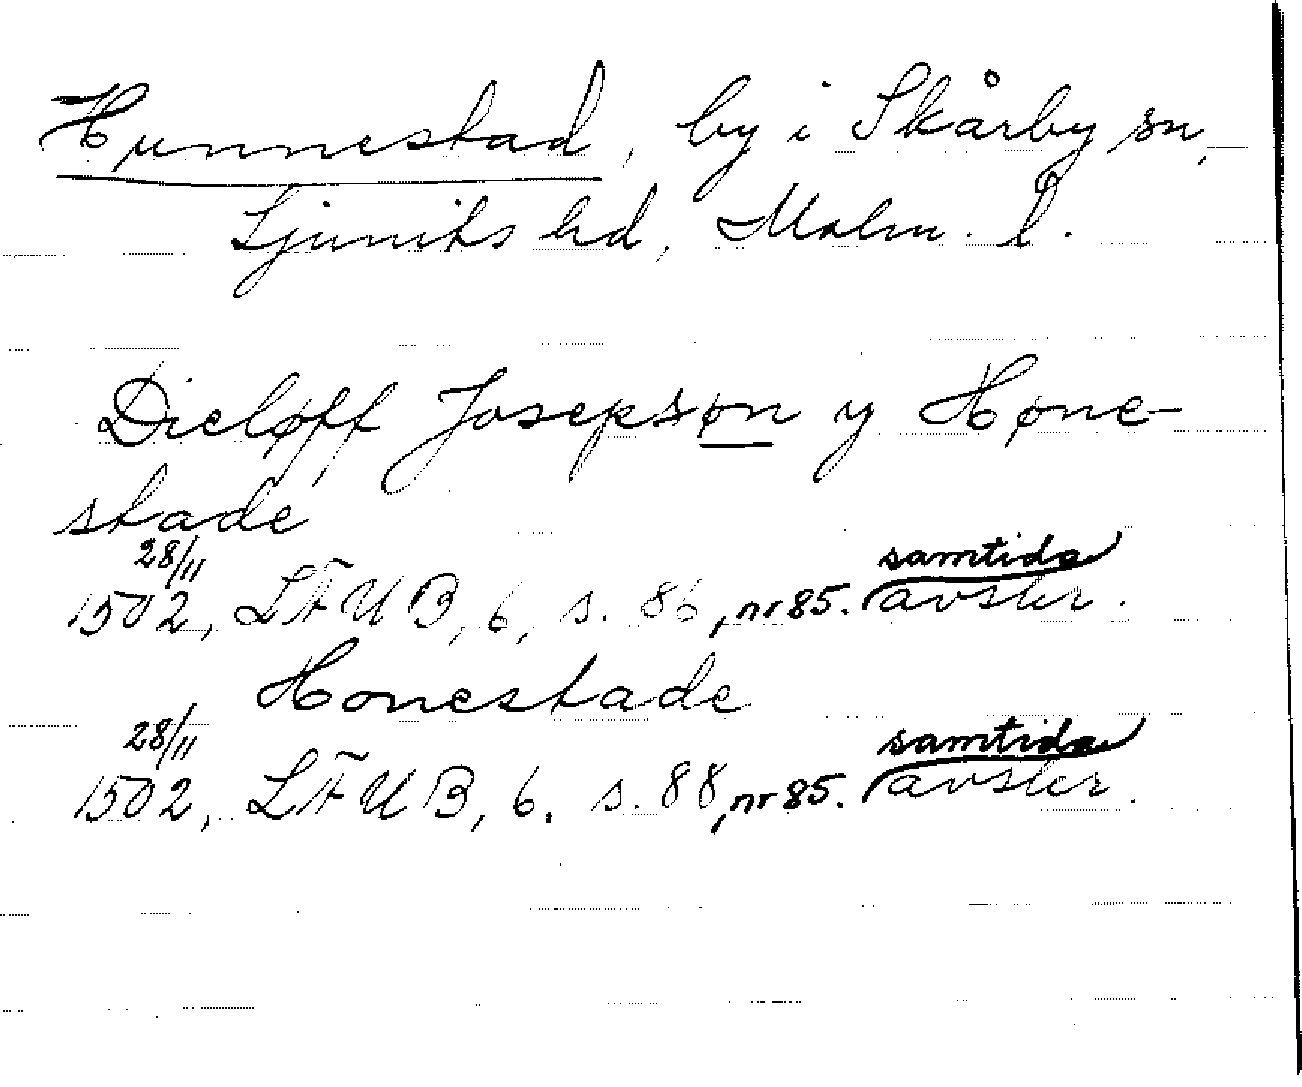 Hunnestad, by i Skårby sn,
Ljunits hd, Malm. l.
Dieløff Josepsøn y Høne-
stade
28/11
1502, LFUB, 6, s. 86, nr 85. samtida avskr.
Honestade
28/11
1502, LFUB, 6. s. 88, nr 85. samtida avskr.